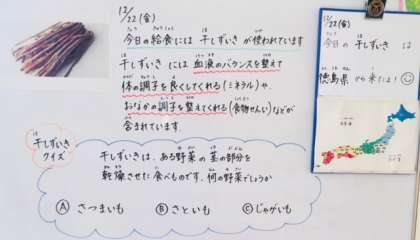 12/22(金)
今日の給食には 干しずいき が使われています
干しずいき には 血液のバランスを整えて
体の調子を良くしてくれる(ミネラル)や、
おなかの調子を整えてくれる(食物せんい)などが
含まれています。
干しずいき
クイズ
干しずいきは、ある野菜の茎の部分を
乾燥させた食べものです。何の野菜でしょうか
Ⓐ さつまいも Ⓑ さといも Ⓒ じゃがいも
12/22(金)
今日の 干しずいき は
徳島県 から来たよ!